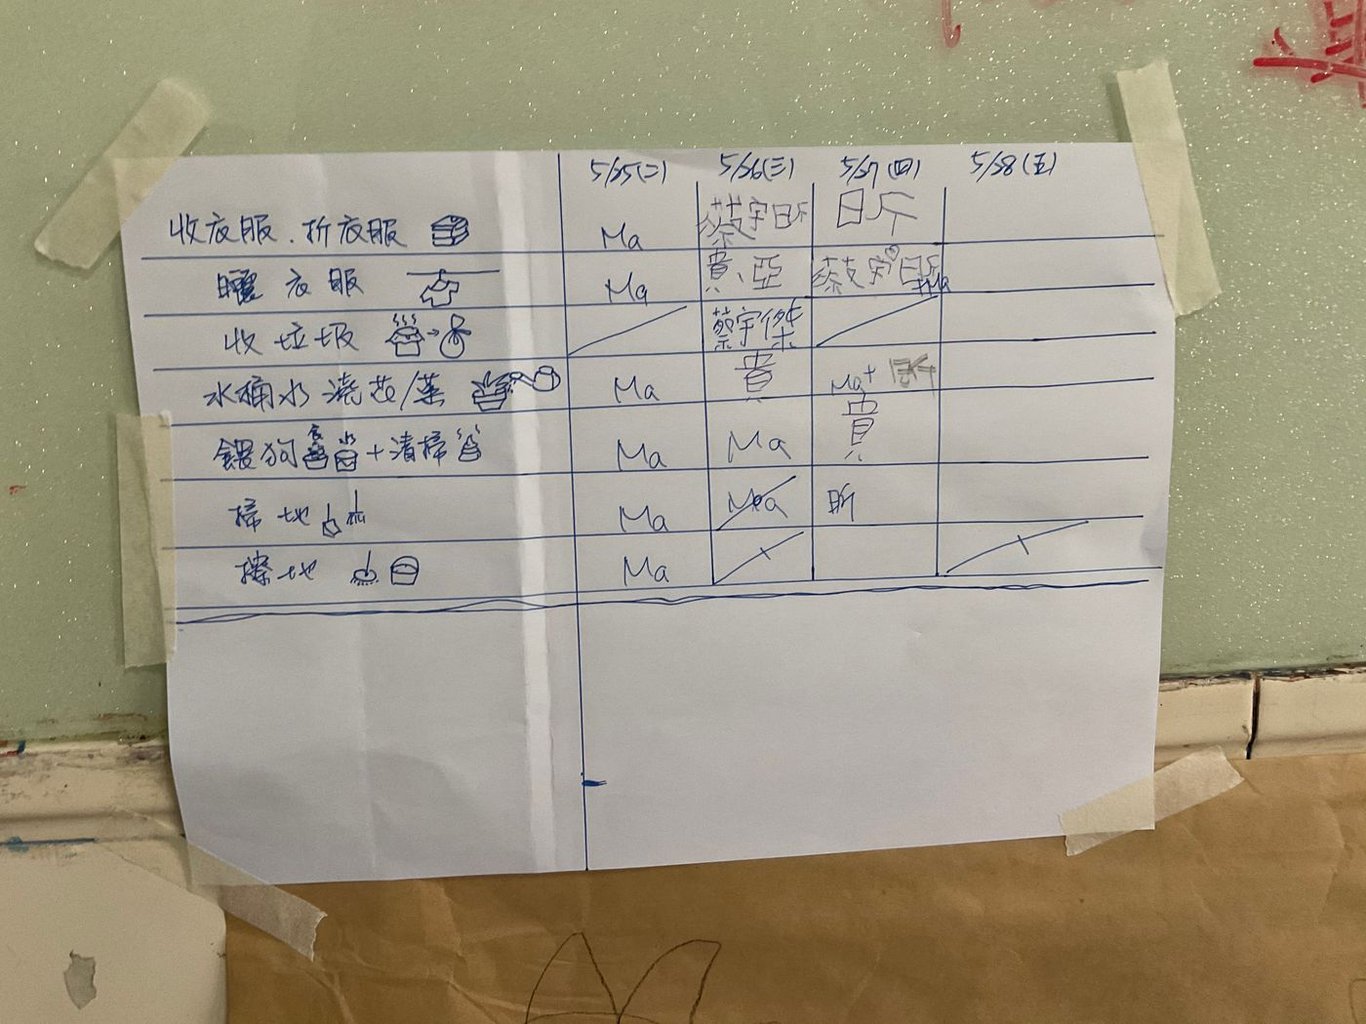 5/25(二) 5/26(三) 5/27(四) 5/28(五)
收衣服.折衣服 Ma 蔡宇昕 昕
曬衣服 Ma 貴、亞 蔡宇昕 Ma
收垃圾 蔡宇傑
水桶水澆花/菜 Ma 貴 Ma+
餵狗 食 水 +清掃 Ma Ma 貴
掃地 Ma Ma 昕
擦地 Ma